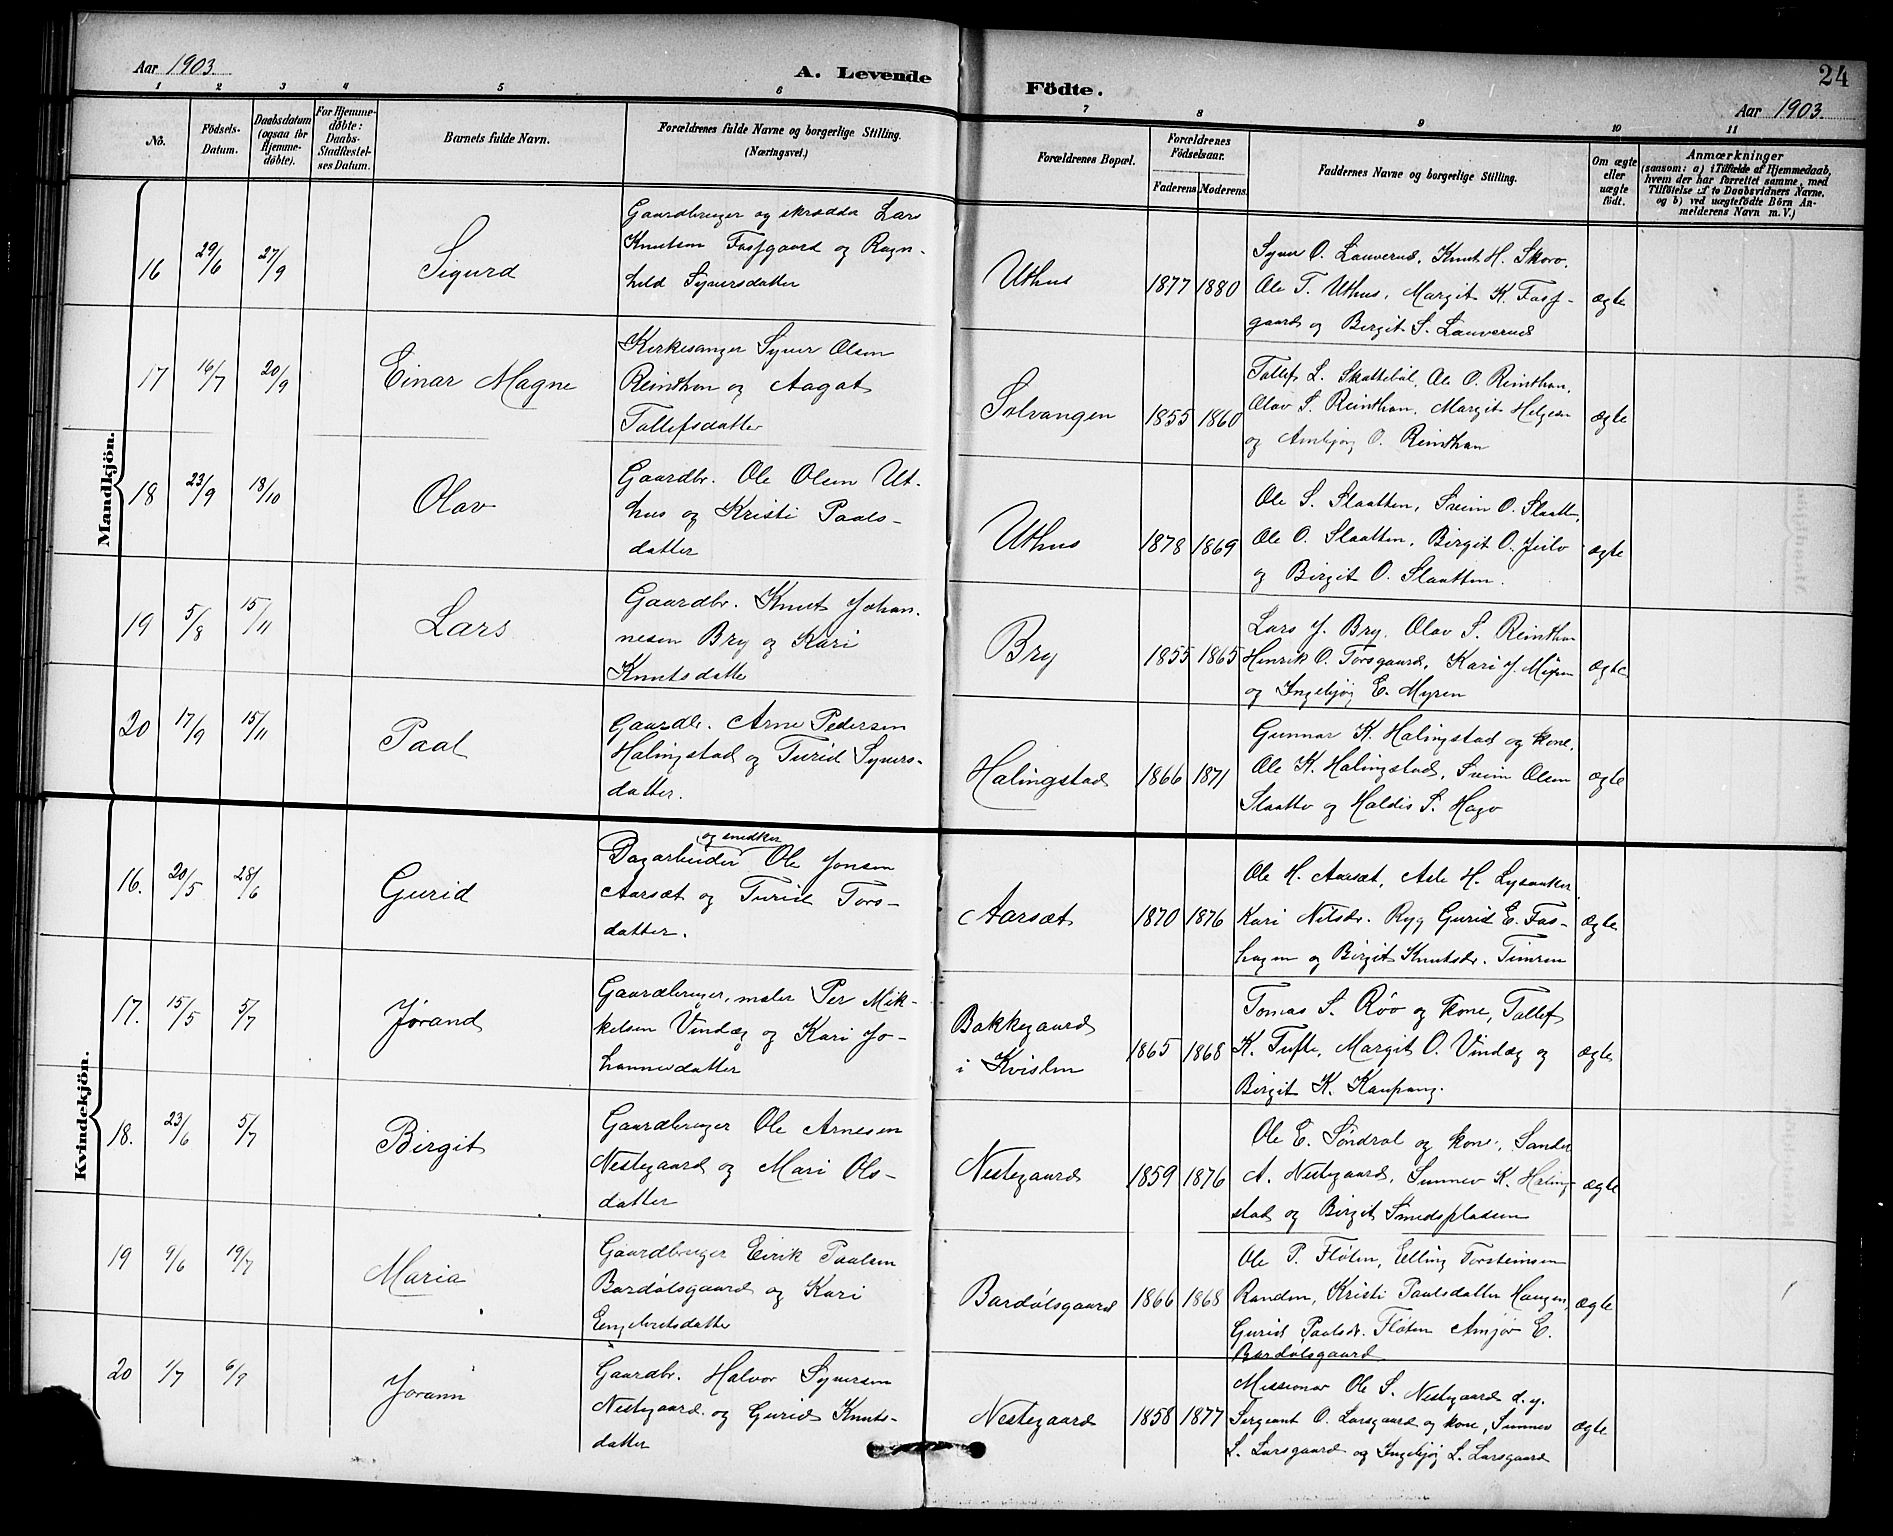 Aar 1903.
A. Levende
Födte.
24
Aar 1903.
1 2 3 4 5 6 7 8 9 10 11
No.
Födsels-
Datum.
Daabsdatum
(ogsaa for
Hjemme-
döbte).
For Hjemme-
döbte:
Daabs-
Stadfæstel-
ses Datum.
Barnets fulde Navn.
Forældrenes fulde Navne og borgerlige Stilling.
(Næringsvei.)
Forældrenes Bopæl.
Forældrenes
Födselsaar.
Faderens Moderens.
Faddernes Navne og borgerlige Stilling.
Om ægte
eller
uægte
födt.
Anmærkninger
(saasom: a) i Tilfælde af Hjemmedaab,
hvem der har forrettet samme, med
Tilföielse af to Daabsvidners Navne.
og b) ved uægtefödte Börn An-
melderens Navn m. V.)
Mandkjön.
16 29/6 27/9 Sigurd
Gaardbruger og skrædder Lars
Knutsen Fosgaard og Ragn-
hild Syversdatter
Uthus 1877 1880
Syver O. Lauverud, Knut H. Skoro.
Ole T. Uthus, Margit K. Fos-
gaard og Birgit S. Lauverud
ægte
17 16/7 20/9 Einar Magne
Kirkesanger Syver Olsen
Reinthon og Aagot
Tollefsdatter
Solvangen 1855 1860
Tollef L. Skattebøl, Ole O. Reinthon,
Olav S. Reinthon, Margit Helgesen
og Ambjør O. Reinthon
ægte
18 23/9 18/10 Olav
Gaardbr. Ole Olsen Ut-
hus og Kristi Paals-
datter
Uthus 1878 1869
Ole S. Slaatten, Svein O. Slaatten,
Ole O. Slaatten, Birgit O. Jeilo
og Birgit O. Slaatten.
ægte
19 5/8 15/11 Lars
Gaardbr. Knut Johan-
nesen Bry og Kari
Knutsdatter
Bry 1855 1865
Lars J. Bry, Olav S. Reinthon
Henrik O. Torsgaard, Kari J. Myren
og Ingebjør E. Myren
ægte
20 17/9 15/11 Paal
Gaardbr. Arne Pedersen
Halingstad og Turid Syvers-
datter.
Halingstad 1866 1871
Gunnar K. Halingstad og kone,
Ole K. Halingstad, Svein Olsen
Slaatto og Haldis S. Hago
ægte
Kvindekjön.
16. 20/5 28/6 Gurid
og snedker
Dagarbeider Ole Jonsen
Aarsæt og Turid Tors-
datter.
Aarsæt 1870 1876
Ole H. Aarsæt, Asle H. Lysaaker
Kari Nilsdr. Ryg Gurid E. Fos-
hagen og Birgit Knutsdr. Timren
ægte
17. 15/5 5/7 Jørand
Gaardbruger, maler Per Mik-
kelsen Vindeg og Kari Jo-
hannesdatter
Bakkegaard
i Kvislen
1865 1868
Tomas S. Røo og kone, Tollef
K. Tufte, Margit O. Vindeg og
Birgit K. Kaupang.
ægte
18. 23/6 5/7 Birgit
Gaardbruger Ole Arnesen
Nestegaard og Mari Ols-
datter
Nestegaard 1859 1876
Ole E. Søndrol og kone, Sander
A. Nestegaard, Sunnev K. Haling-
stad og Birgit Smedsplassen
ægte
19 9/6 19/7 Maria
Gaardbruger Eirik Paalsen
Bardølsgaard og Kari
Engebretsdatter
Bardølsgaard 1866 1868
Ole P. Fløten, Elling Torsteinsen
Randen, Kristi Paalsdatter Haugen,
Gurid Paalsdr. Fløten Amjør E.
Bardølsgaard
ægte
20 1/7 6/9 Jorann
Gaardbr. Halvor Syversen
Nestegaard og Gurid Knuts-
datter
Nestegaard 1858 1877
Missionær Ole S. Nestegaard d. y.
Sergeant O. Larsgaard og kone, Sunnev
L. Larsgaard og Ingebjør L. Larsgaard
ægte